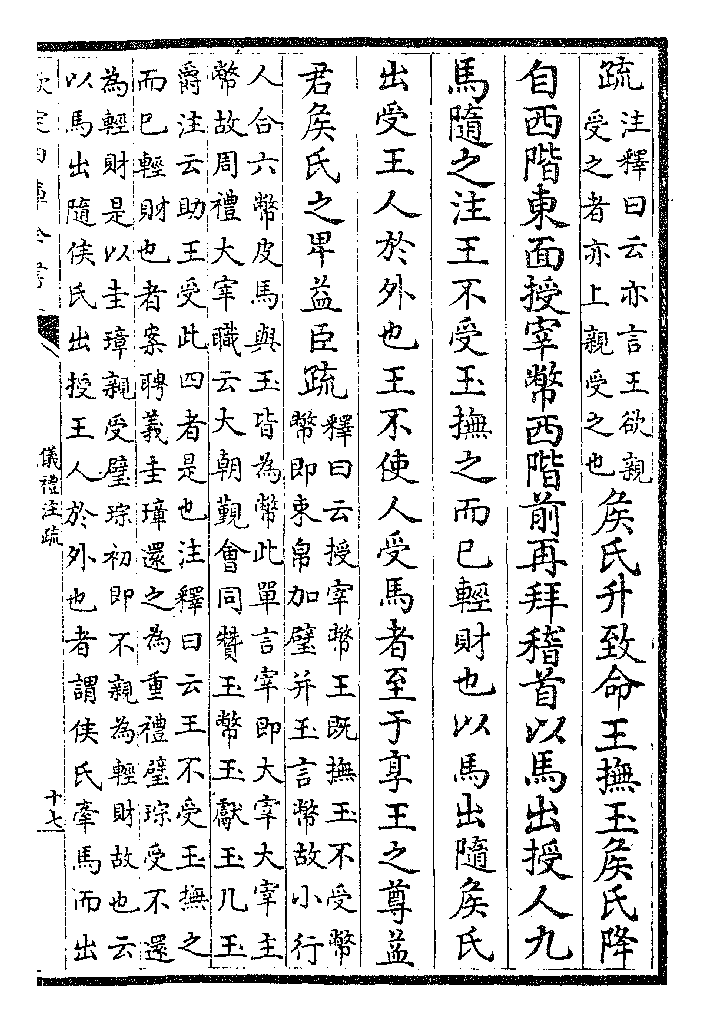 疏
注釋曰云亦言王欲親
受之者亦上親受之也
矦氏升致命王撫玉矦氏降
自西階東面授宰幣西階前再拜稽首以馬出授人九
馬隨之注王不受玉撫之而已輕財也以馬出隨矦氏
出受王人於外也王不使人受馬者至于享王之尊益
君矦氏之卑益臣疏
釋曰云授宰幣王既撫玉不受幣
幣即束帛加璧并玉言幣故小行
人合六幣皮馬與玉皆為幣此單言宰即大宰大宰主
幣故周禮大宰職云大朝覲會同贊玉幣玉獻玉几玉
爵注云助王受此四者是也注釋曰云王不受玉撫之
而已輕財也者案聘義圭璋還之為重禮璧琮受不還
為輕財是以圭璋親受璧琮初即不親為輕財故也云
以馬出隨侯氏出授王人於外也者謂侯氏牽馬而出
欽定四庫全書
儀禮注疏
十七